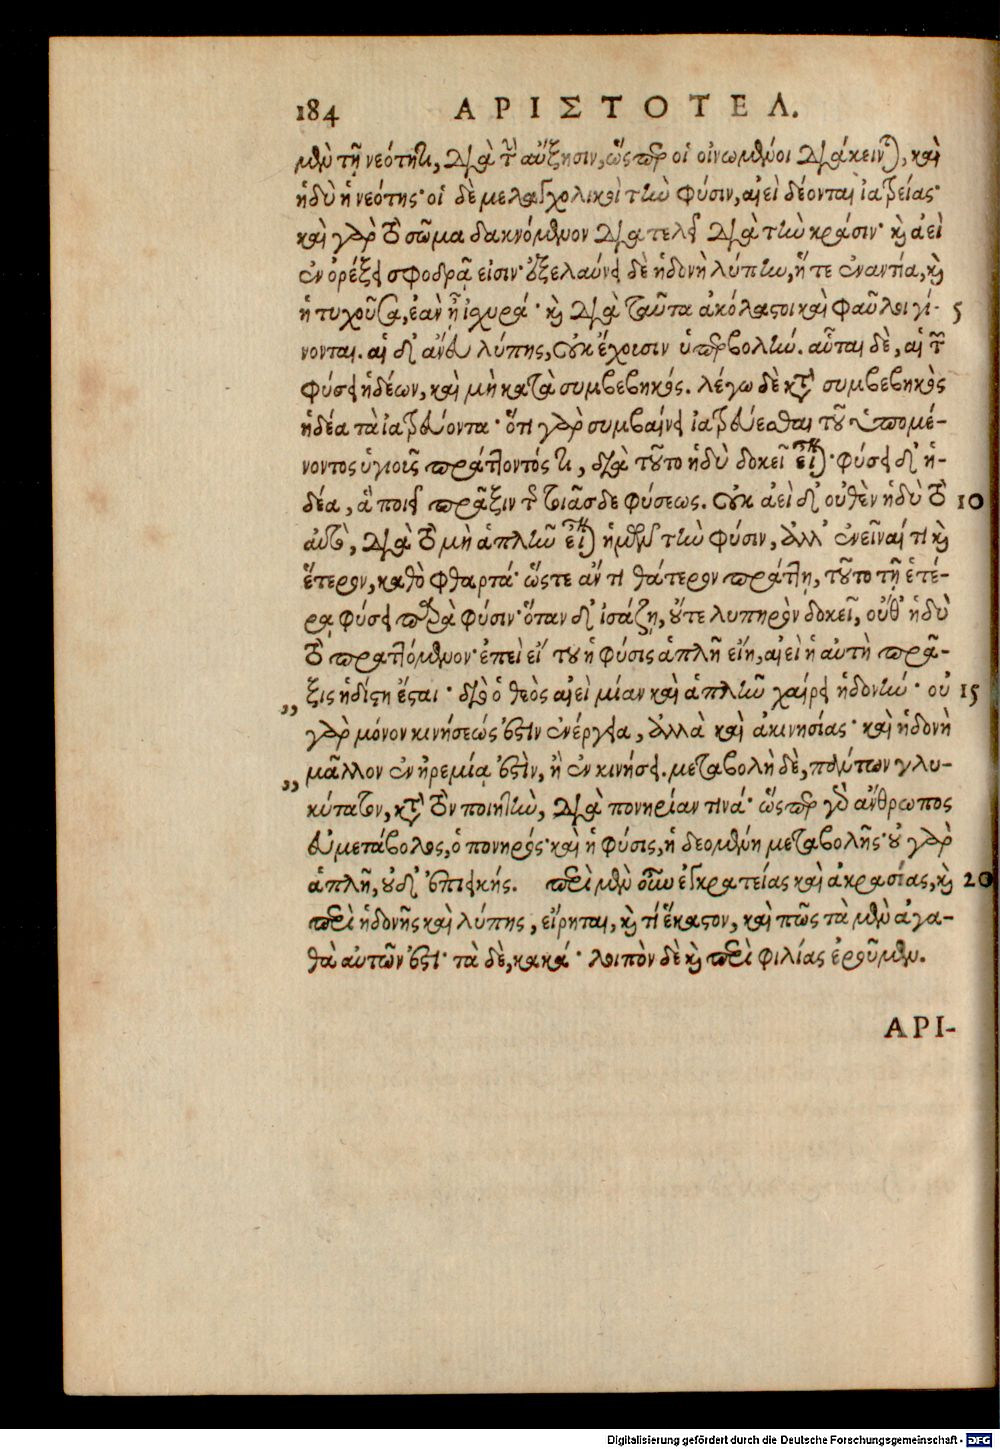 184 ΑΡΙΣΤΟΤΕΛ.
μὲν τῇ νεότητι, διὰ τὴν αὔξησιν, ὥσπερ οἱ οἰνωμένοι διάκεινται, καὶ
ἡδὺ ἡ νεότης· οἱ δὲ μελαγχολικοὶ τὴν φύσιν, ἀεὶ δέονται ἰατρείας·
καὶ γὰρ τὸ σῶμα δακνόμενον διατελεῖ διὰ τὴν κράσιν· καὶ ἀεὶ
ἐν ὀρέξει σφοδρᾷ εἰσιν· ἐξελαύνει δὲ ἡδονὴ λύπην, ἥ τε ἐναντία, καὶ
ἡ τυχοῦσα, ἐὰν ᾖ ἰσχυρά· καὶ διὰ ταῦτα ἀκόλαστοι καὶ φαῦλοι γί- 5
νονται. αἱ δ᾽ ἄνευ λύπης, οὐκ ἔχουσιν ὑπερβολήν. αὗται δὲ, αἱ τῶν
φύσει ἡδέων, καὶ μὴ κατὰ συμβεβηκός. λέγω δὲ κατὰ συμβεβηκὸς
ἡδέα τὰ ἰατρεύοντα· ὅτι γὰρ συμβαίνει ἰατρεύεσθαι τοῦ ὑπομέ-
νοντος ὑγιοῦς πράττοντός τι, διὰ τοῦτο ἡδὺ δοκεῖ εἶναι· φύσει δ᾽ ἡ-
δέα, ἃ ποιεῖ πρᾶξιν τῆς τοιᾶσδε φύσεως. οὐκ ἀεὶ δ᾽ οὐθὲν ἡδὺ τὸ 10
αὐτὸ, διὰ τὸ μὴ ἁπλῆν εἶναι ἡμῶν τὴν φύσιν, ἀλλ᾽ ἐνεῖναί τι καὶ
ἕτερον, καθὸ φθαρτά· ὥστε ἄν τι θάτερον πράττῃ, τοῦτο τῇ ἑτέ-
ρᾳ φύσει παρὰ φύσιν· ὅταν δ᾽ ἰσάζῃ, οὔτε λυπηρὸν δοκεῖ, οὔθ᾽ ἡδὺ
τὸ πραττόμενον· ἐπεὶ εἴ του ἡ φύσις ἁπλῆ εἴη, ἀεὶ ἡ αὐτὴ πρᾶ-
„ξις ἡδίστη ἔσται· διὸ ὁ θεὸς ἀεὶ μίαν καὶ ἁπλῆν χαίρει ἡδονήν· οὐ 15
γὰρ μόνον κινήσεώς ἐστιν ἐνέργεια, ἀλλὰ καὶ ἀκινησίας· καὶ ἡδονὴ
„μᾶλλον ἐν ἠρεμίᾳ ἐστὶν, ἢ ἐν κινήσει. μεταβολὴ δὲ, πάντων γλυ-
κύτατον, κατὰ τὸν ποιητὴν, διὰ πονηρίαν τινά· ὥσπερ γὰρ ἄνθρωπος
εὐμετάβολος, ὁ πονηρός· καὶ ἡ φύσις, ἡ δεομένη μεταβολῆς· οὐ γὰρ
ἁπλῆ, οὐδ᾽ ἐπιεικής. περὶ μὲν οὖν ἐγκρατείας καὶ ἀκρασίας, καὶ 20
περὶ ἡδονῆς καὶ λύπης, εἴρηται, καὶ τί ἕκαστον, καὶ πῶς τὰ μὲν ἀγα-
θὰ αὐτῶν ἐστι· τὰ δὲ, κακά· λοιπὸν δὲ καὶ περὶ φιλίας ἐροῦμεν.
ΑΡΙ-
Digitalisierung gefördert durch die Deutsche Forschungsgemeinschaft - DFG